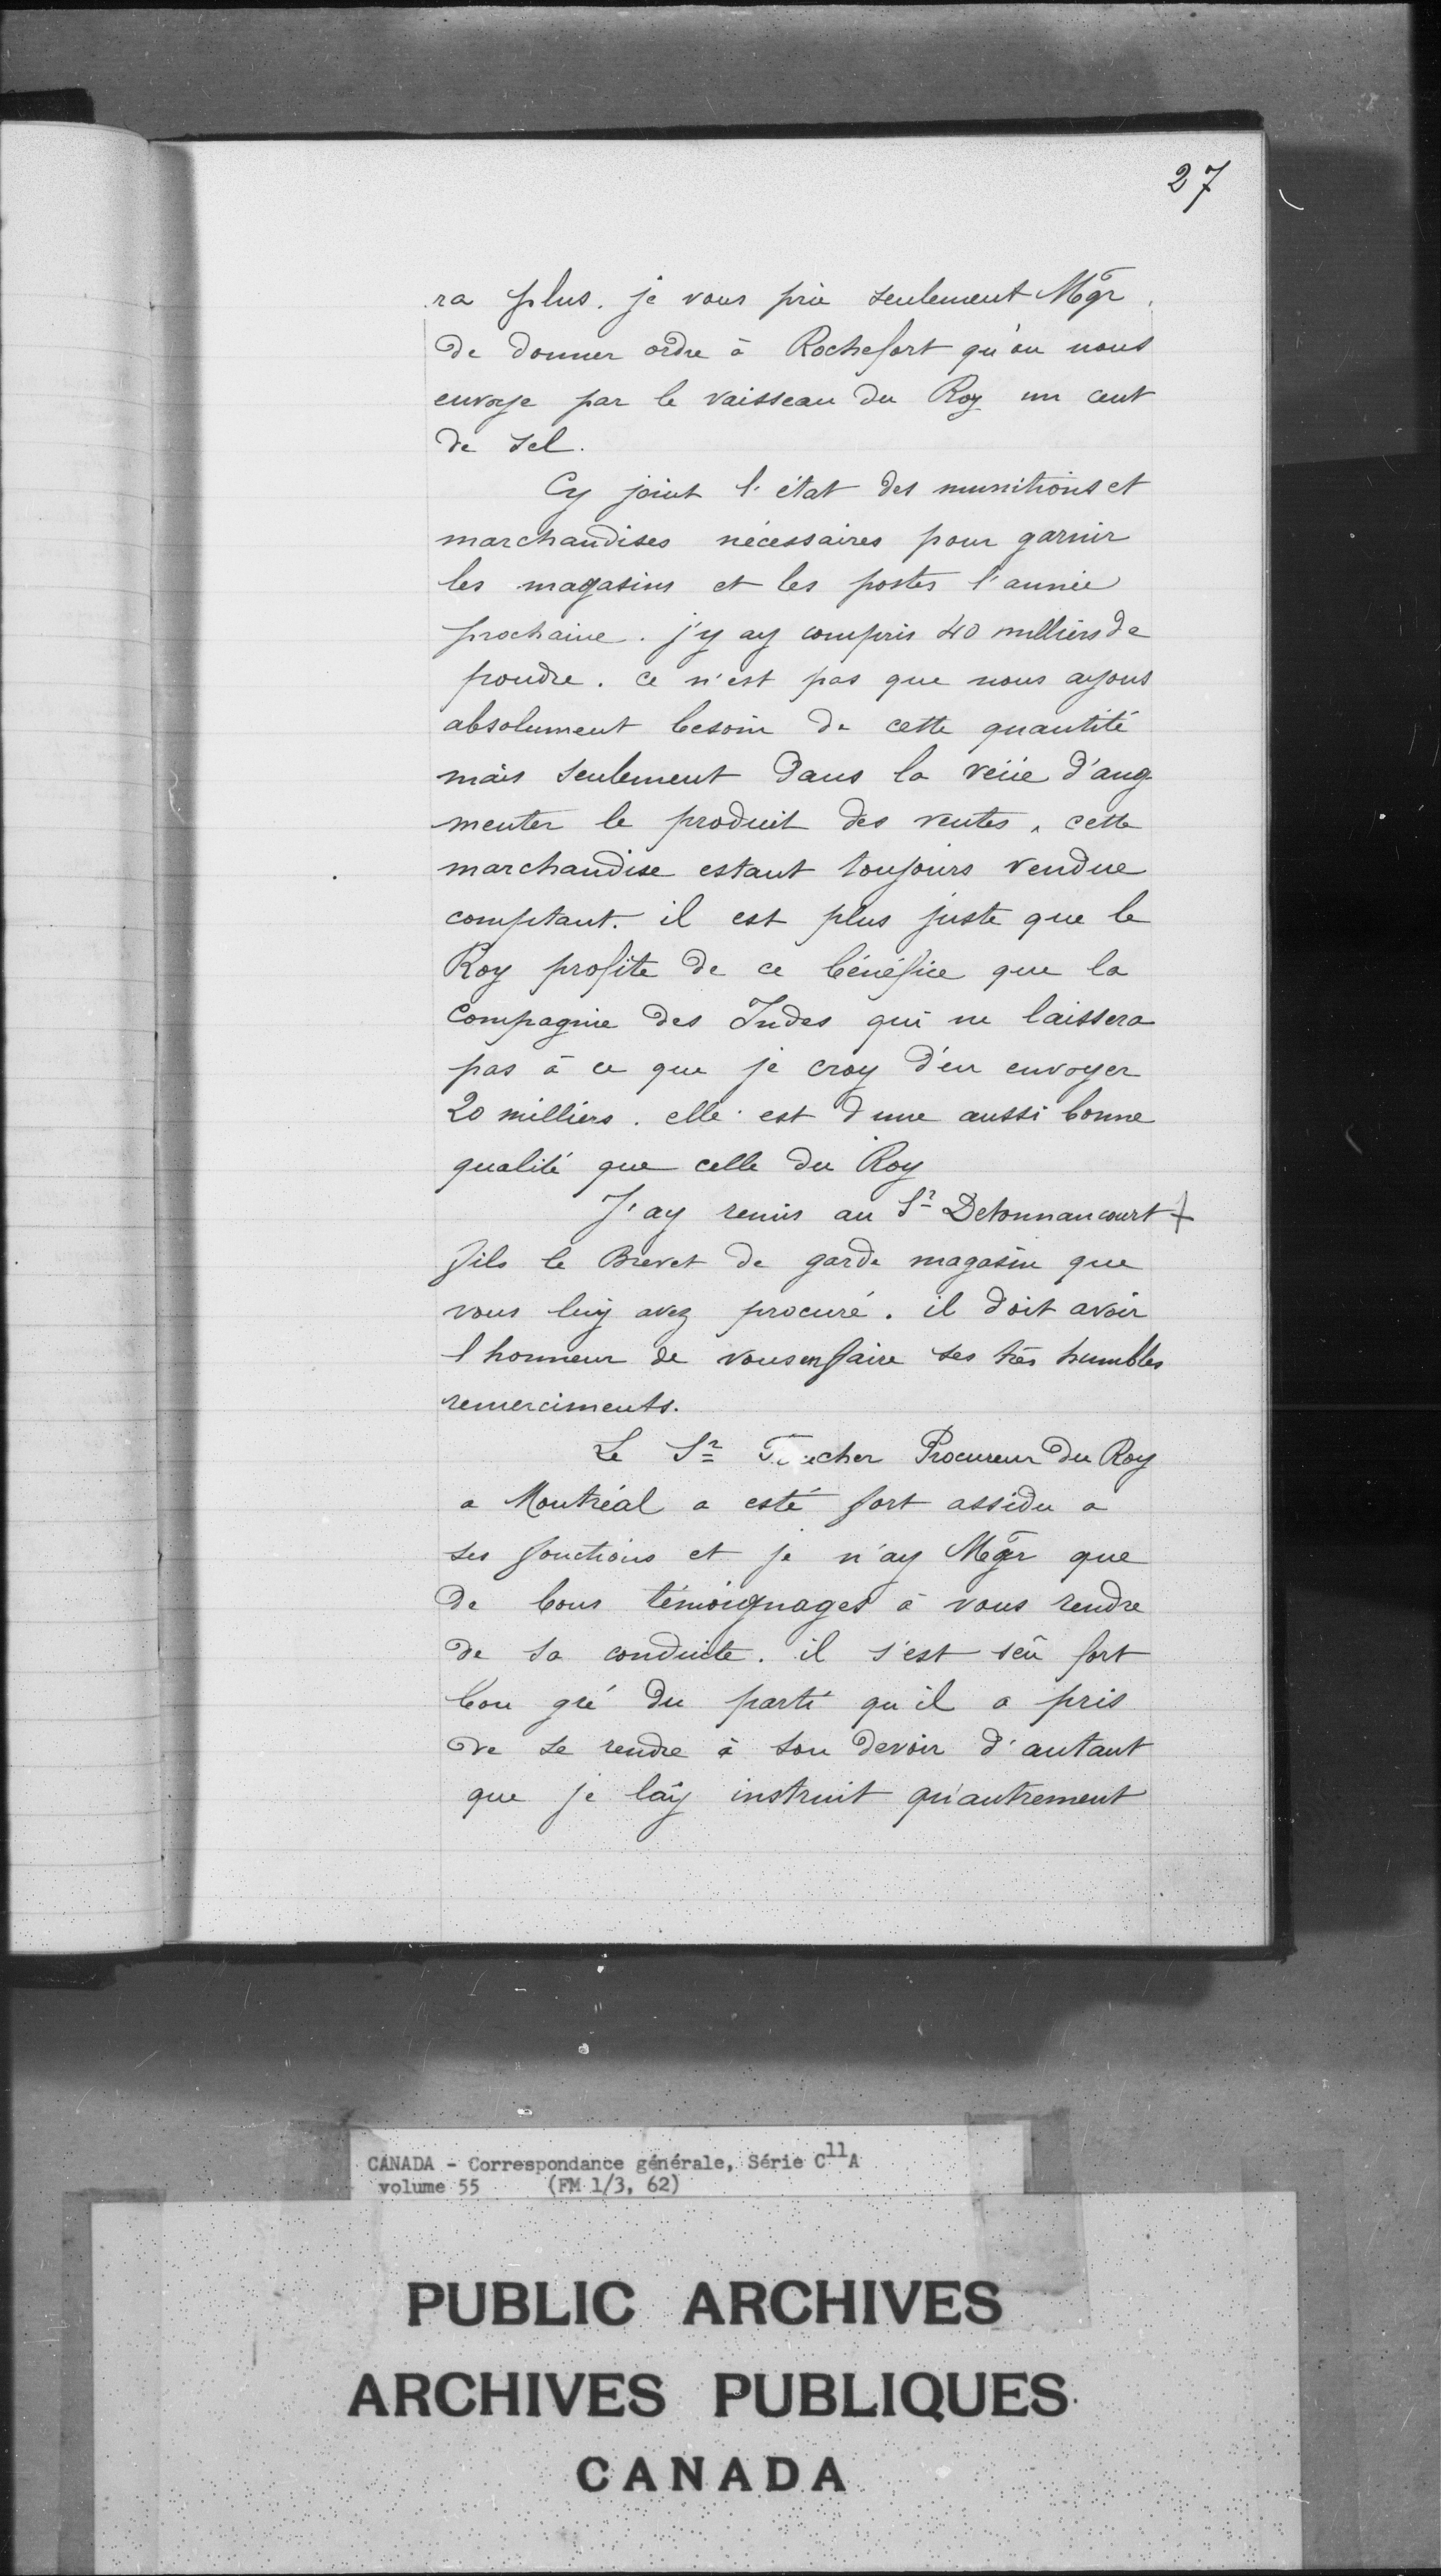 27
ra plus. je vous prie seulement Mgr
de donner ordre à Rochefort qu'on nous
envoye par le vaisseau du Roy un cent
de sel.
Cy joint l'état des munitions et
marchandises nécessaires pour garnir
les magasins et les postes l'année
prochaine. j'y ay compris 40 milliers de
poudre. ce n'est pas que nous ayons
absolument besoin de cette quantité
mais seulement dans la veüe d'aug
menter le produit des ventes, cette
marchandise estant toujours vendue
comptant. il est plus juste que le
Roy profite de ce bénéfice que la
Compagnie des Indes qui ne laissera
pas à ce que je croy d'en envoyer
20 milliers. elle est d'une aussi bonne
qualité que celle du Roy
J'ay remis au Sr Detonnancourt +
fils le Brevet de garde magasin que
vous luy avez procuré. il doit avoir
l honneur de vous en faire ses très humbles
remerciments.
Le Sr Procureur du Roy
a Montréal a esté fort assidu a
ses fonctions et je n'ay Mgr que
de bons témoignages à vous rendre
de sa conduite. il s'est sçû fort
bon gré du parti qu'il a pris
de se rendre à son devoir d'autant
que je l'aÿ instruit qu'autrement
CANADA - Correspondance générale, Série C11A
volume 55 (FM 1/3, 62)
PUBLIC ARCHIVES
ARCHIVES PUBLIQUES
CANADA